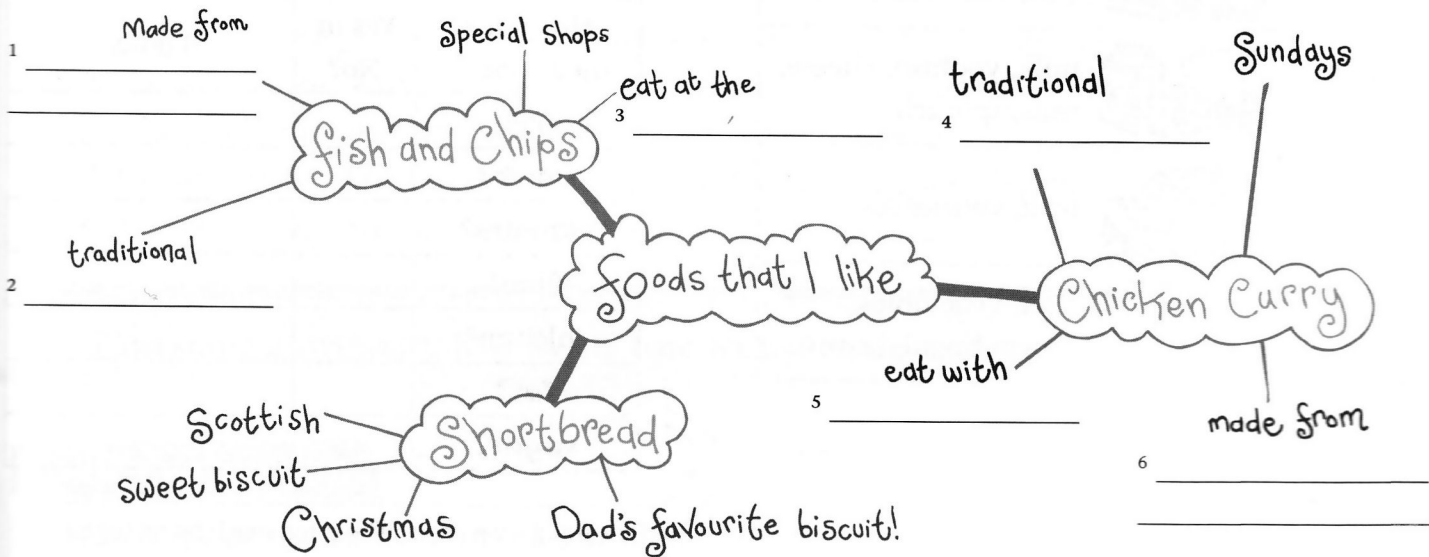 Made from
1
Special Shops
eat at the
3
fish and Chips
traditional
2
traditional
4
Sundays
foods that I like
Chicken Curry
eat with
5
made from
6
Shortbread
Scottish
sweet biscuit
Christmas
Dad's favourite biscuit!